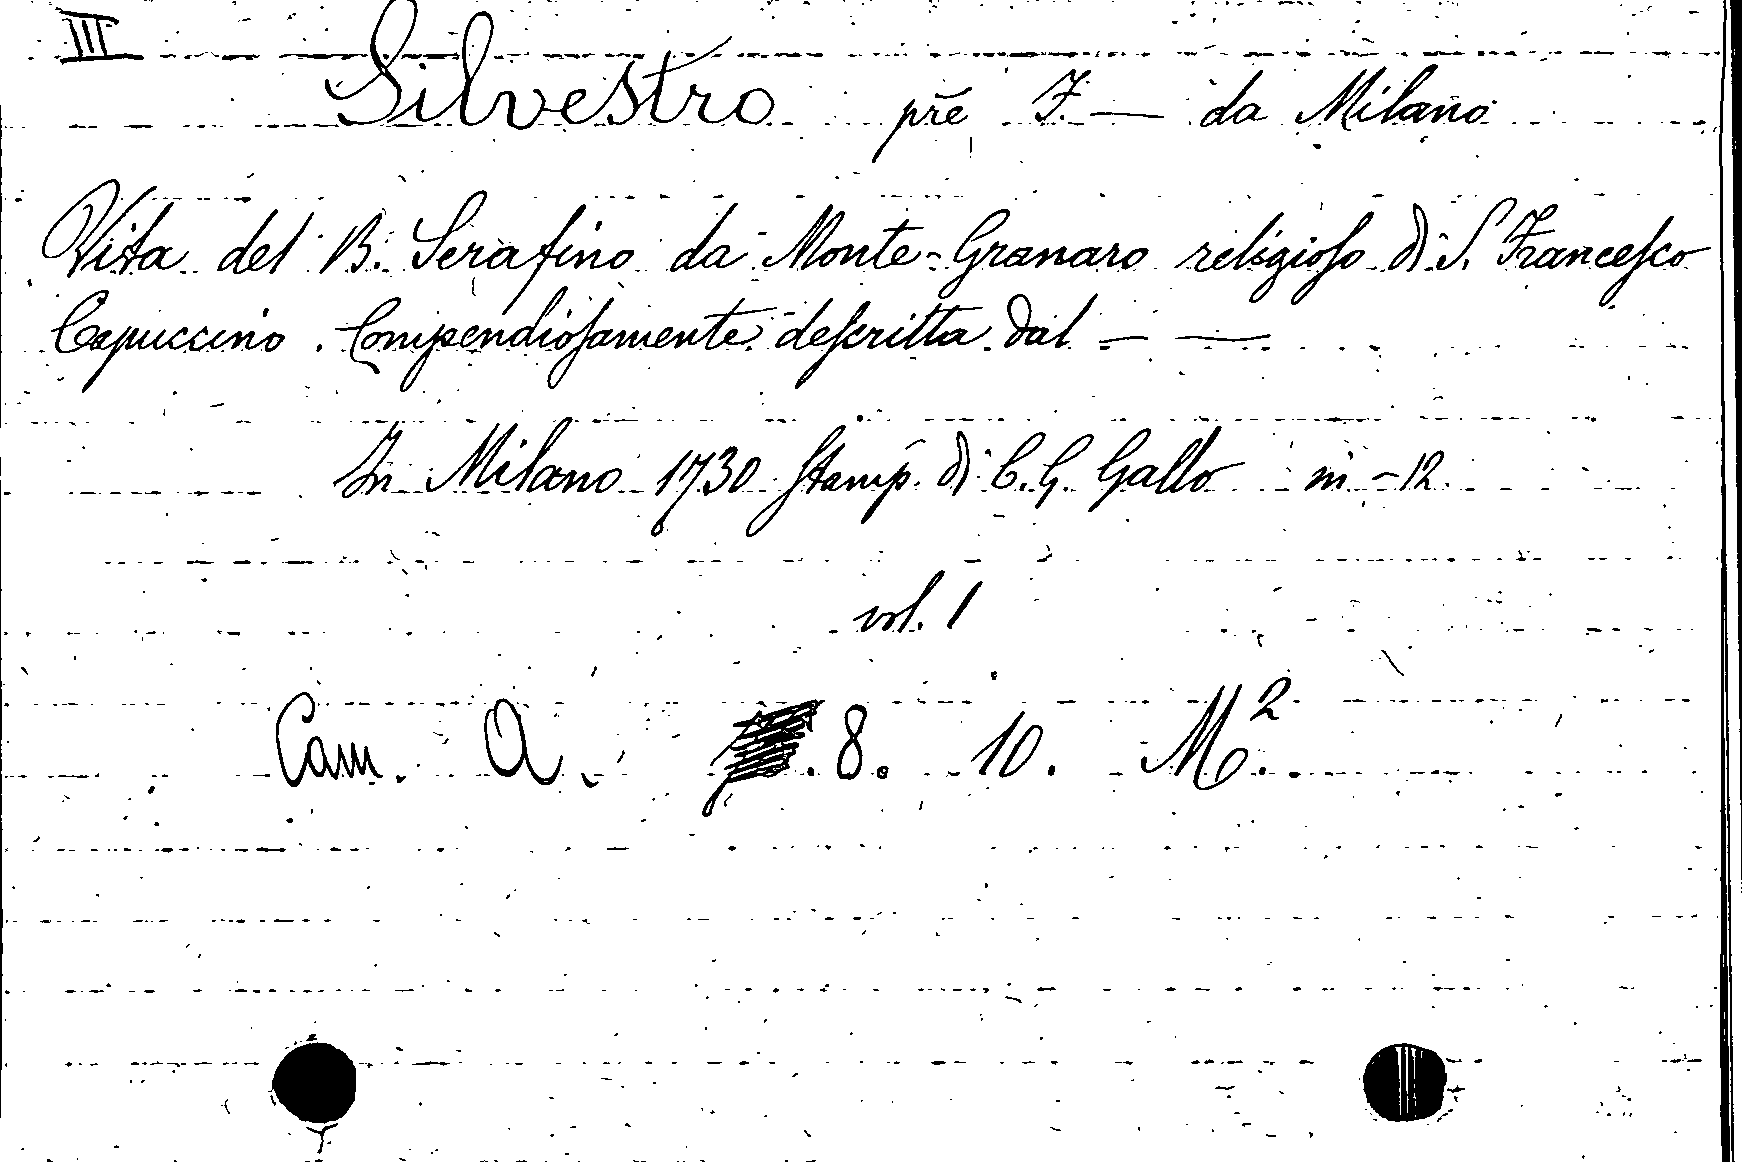 III
Silvestro prẽ F. — da Milano
Vita del B. Serafino da Monte-Granaro religioſo di S. Franceſco
Capuccino. Compendioſamente deſcritta dal — —
In Milano 1730 ſtamp. di C. G. Gallo in -12.
vol. 1
Cam. A. . 8. 10. M².